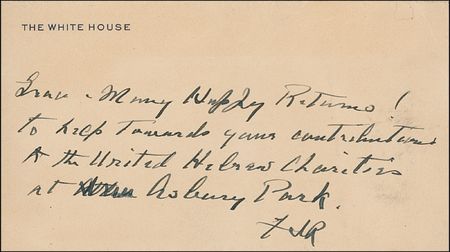 THE WHITE HOUSE
Grace - Many Happy Returns!
to help towards your contributions
to the United Hebrew Charities
at Asbury Park.
FDR